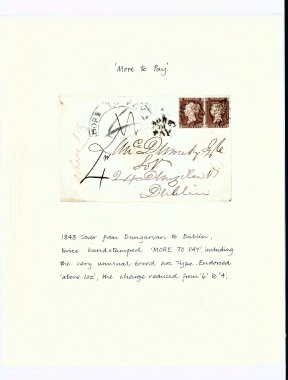 'More to Pay'
MORE
MORE
TO
PAY
4
Dublin
1843 Cover from Dungarvan to Dublin,
twice handstamped 'MORE TO PAY', including
the very unusual boxed arc Type. Endorsed
'above 1oz', the charge reduced from '6' to '4'.